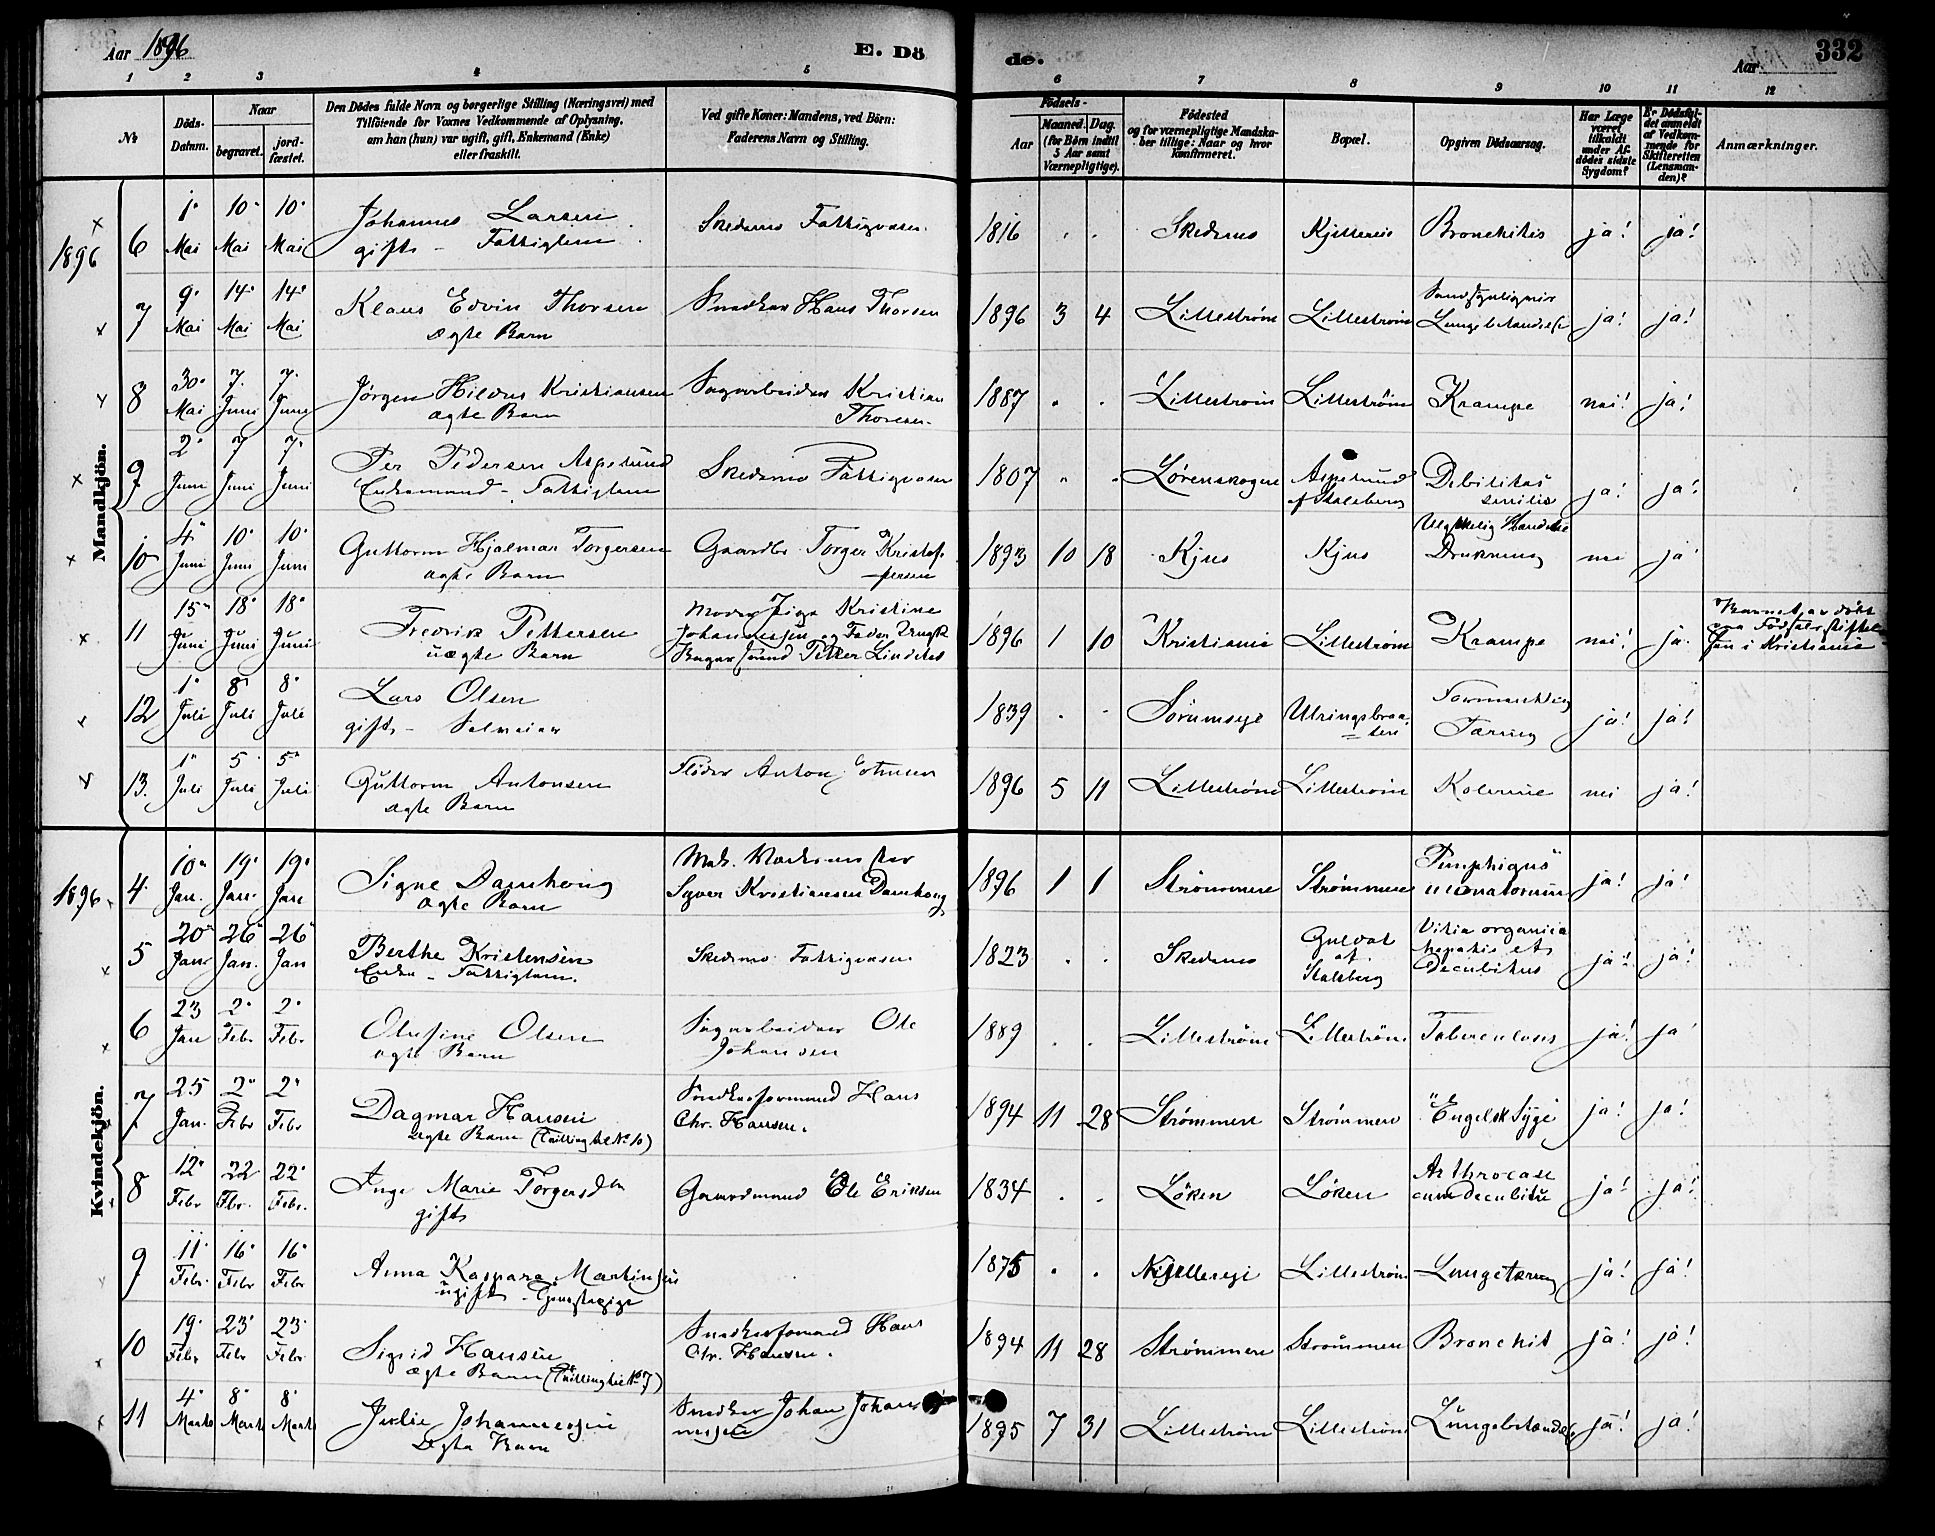 Aar 1896
E. Dö
de.
Aar
332
1 2 3 4 5 6 7 8 9 10 11 12
№
Döds-
Datum.
Naar
begravet.
jord-
fæstet.
Den Dödes fulde Navn og borgerlige Stilling (Næringsvei) med
Tilföiende for Voxnes Vedkommende af Oplysning,
om han (hun) var ugift, gift, Enkemand (Enke)
eller fraskilt.
Ved gifte Koner: Mandens, ved Börn:
Faderens Navn og Stilling.
Födsels-
Aar
Maaned. Dag.
(for Börn indtil
5 Aar samt
Værnepligtige).
Födested
og for værnepligtige Mandska-
ber tillige: Naar og hvor
konfirmeret.
Bopæl.
Opgiven Dödsaarsag.
Har Læge
været
tilkaldt
under Af-
dödes sidste
Sygdom?
Er Dödsfal-
det anmeldt
af Vedkom-
mende for
Skifteretten
(Lensman-
den)?
Anmærkninger.
Mandkjön.
1896 6 1. Mai 10. Mai 10. Mai Johannes Larsen
gift - Fattiglem Skedsmo Fattigvæsen 1816 Skedsmo Bronchitis ja! ja!
7 9. Mai 14. Mai 14. Mai Klaus Edvin Thorsen
ægte Barn Snedker Hans Thorsen 1896 3 4 Lillestrøm Lillestrøm Lungebetændelse ja! ja!
8 30. Mai 7. Juni 7. Juni Jørgen Hildus Kristiansen
ægte Barn Sagarbeider Kristian
Thoresen 1887 Lillestrøm Lillestrøm Krampe nei! ja!
9 2. Juni 7 Juni 7. Juni Per Pedersen Aspelund
Enkemand - Fattiglem Skedsmo Fattigvæsen 1807 Lørenskogen Aspelund
af Stalsberg Debilitas
senilis ja! ja!
10 4. Juni 10. Juni 10. Juni Guttorm Hjalmar Torgersen
ægte Barn Gaardbr. Torger Kristof-
fersen 1893 10 18 Kjus Kjus Ulykkelig Hændelse
Drukning nei ja
11 15. Juni 18. Juni 18. Juni Fredrik Pettersen
uægte Barn Moder Pige Kristine
Johannessen og Fader Ungk
Bagersvend Petter Lindstad 1896 1 10 Kristiania Lillestrøm Krampe nei! ja. Barnet er døbt
paa Fødselsstiftel-
sen i Kristiania
12 1. Juli 8. Juli 8. Juli Lars Olsen
gift - Selveier 1839 Sørumseje Tæring ja! ja!
13. 1. Juli 5. Juli 5. Juli Guttorm Antonsen
ægte Barn Fløder Anton 1896 5 11 Lillestrøm Lillestrøm Kolerine nei ja!
Kvindekjön.
1896 4. 10. Jan. 19. Jan. 19. Jan Signe Damhoug
ægte Barn Mek. Værksmester
Syver Kristiansen Damhoug 1896 1 1 Strømmen Strømmen Pemphigus
neonatorum ja! ja!
5 20. Jan 26. Jan. 26. Jan Berthe Kristensen
Enke - Fattiglem. Skedsmo Fattigvæsen 1823 Skedsmo Guldal
af
Stalsberg Vitia organica
hepatis et
decubitus ja! ja!
6 23 Jan 2. Febr 2. Febr Olufine Olsen
ægte Barn Sagarbeider Ole
Johansen 1889 Lillestrøm Lillestrøm Tuberculosis ja! ja
7 25 Jan. 2. Febr 2. Febr Dagmar Hansen
ægte Barn (Tvilling til No 10) Snedkerformand Hans
Chr. Hansen. 1894 11 28 Strømmen Strømmen Engelsk Syge ja! ja!
8 12. Febr 22 Febr. 22. Febr. Inge Marie Torgersdtr
gift Gaardmand Ole Eriksen 1834 Løken Løken Arthrocace
cum decubitu ja! ja!
9 11. Febr. 16. Febr 16. Febr Anna Kaspara Martinsen
ugift - Tjenestepige 1875 Lillestrøm Lungetæring ja! ja!
10 19. Febr 23. Febr 23. Febr. Sigrid Hansen
ægte Barn (Tvilling til No 7) Snedkerformand Hans
Chr. Hansen. 1894 11 28 Strømmen Strømmen Bronchit ja! ja!
11 4. Marts 8. Marts 8. Marts Julie Johannessen
ægte Barn Snedker Johan Johan-
nessen 1895 7 31 Lillestrøm Lillestrøm Lungebetændelse ja! ja!